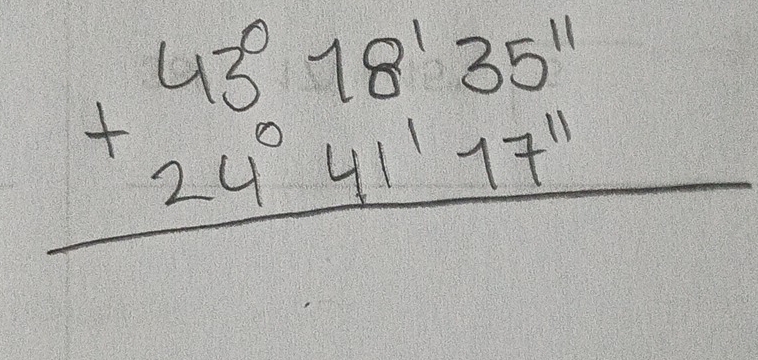 43° 18' 35"
+
24° 41' 17"